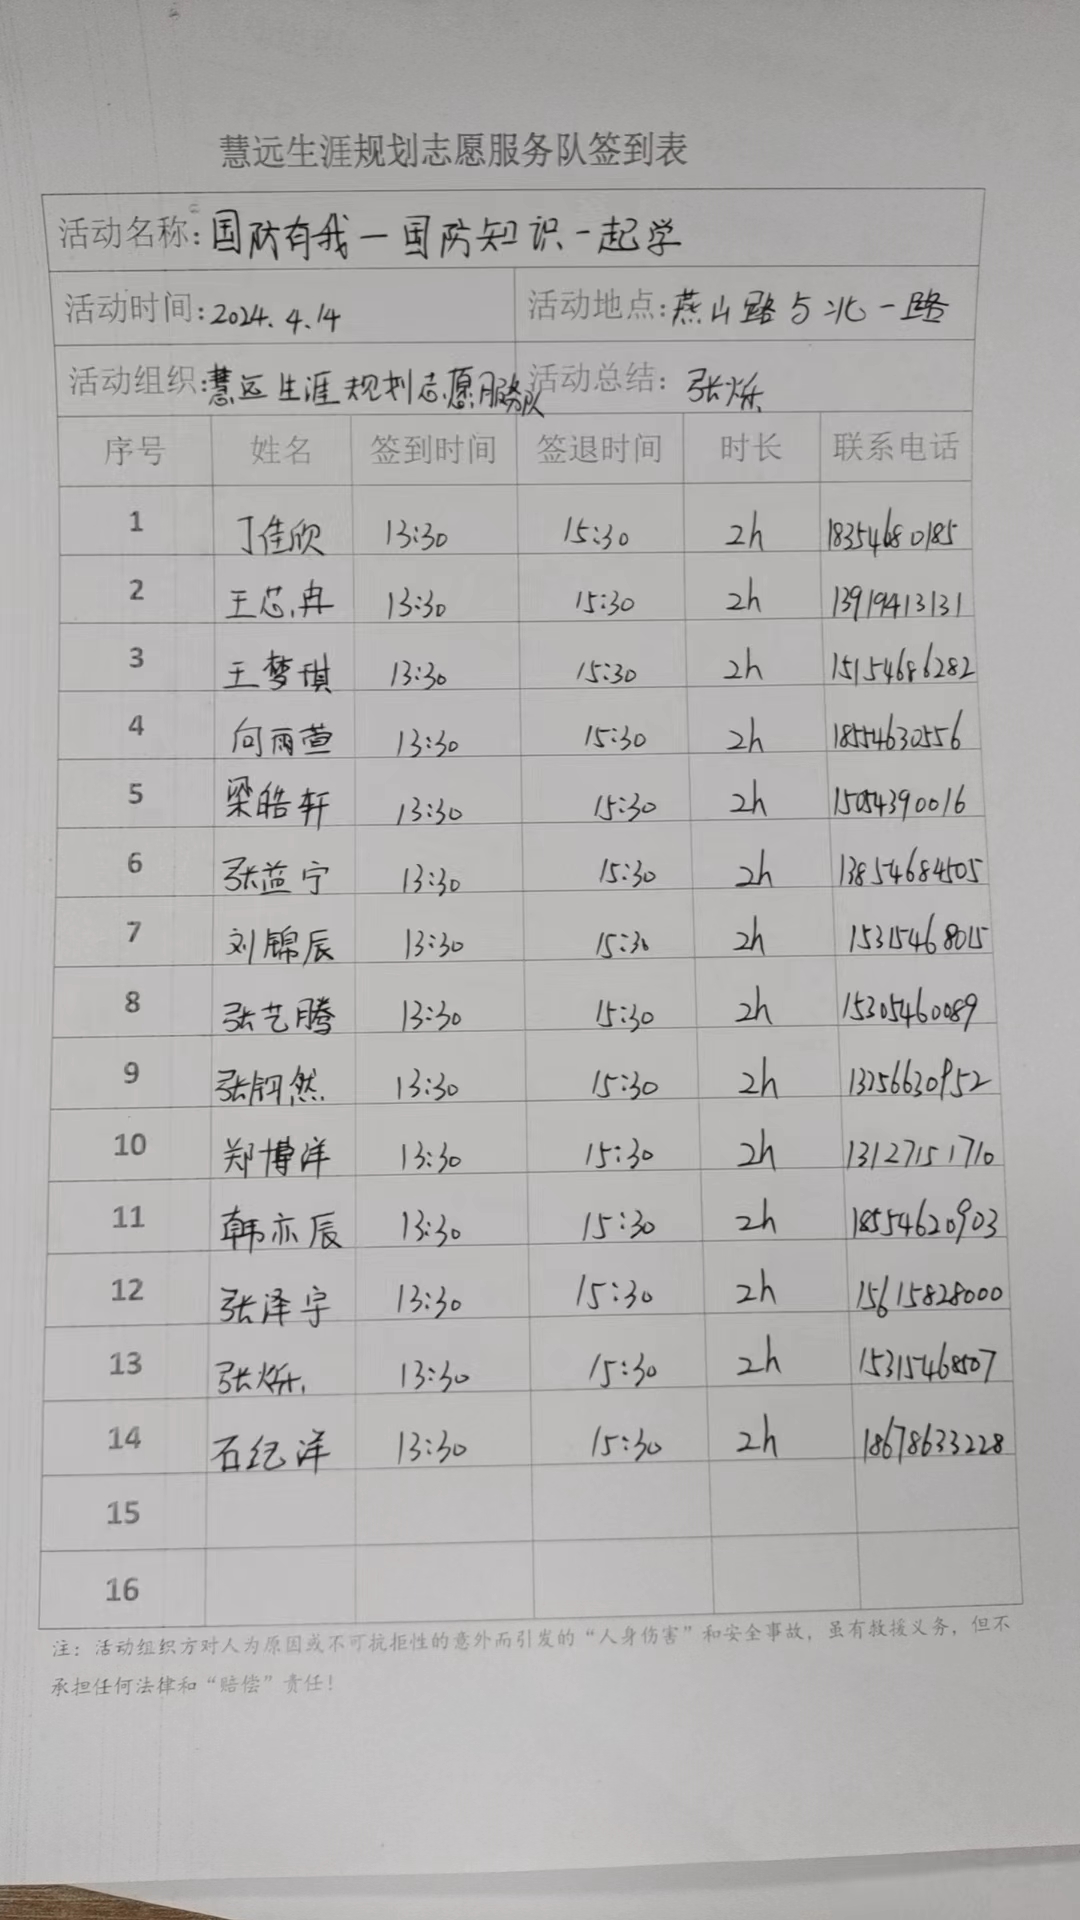 慧远生涯规划志愿服务队签到表
活动名称:国防有我一国防知识一起学
活动时间:2024.4.14 活动地点:燕山路与北一路
活动组织:慧远生涯规划志愿服务队 活动总结:张烁
序号 姓名 签到时间 签退时间 时长 联系电话
1 丁佳欣 13:30 15:30 2h 18354680185
2 王芯冉 13:30 15:30 2h 13919413131
3 王梦琪 13:30 15:30 2h 15154686282
4 向雨萱 13:30 15:30 2h 18554630556
5 梁皓轩 13:30 15:30 2h 15054390016
6 张益宁 13:30 15:30 2h 13854684505
7 刘锦辰 13:30 15:30 2h 15315468015
8 张艺腾 13:30 15:30 2h 15305460089
9 张钧然 13:30 15:30 2h 13256630952
10 郑博洋 13:30 15:30 2h 13127151710
11 韩亦辰 13:30 15:30 2h 18554620903
12 张泽宇 13:30 15:30 2h 15615828000
13 张烁 13:30 15:30 2h 15315468507
14 石纪洋 13:30 15:30 2h 18678633228
15
16
注：活动组织方对人为原因或不可抗拒性的意外而引发的“人身伤害”和安全事故，虽有救援义务，但不
承担任何法律和“赔偿”责任！